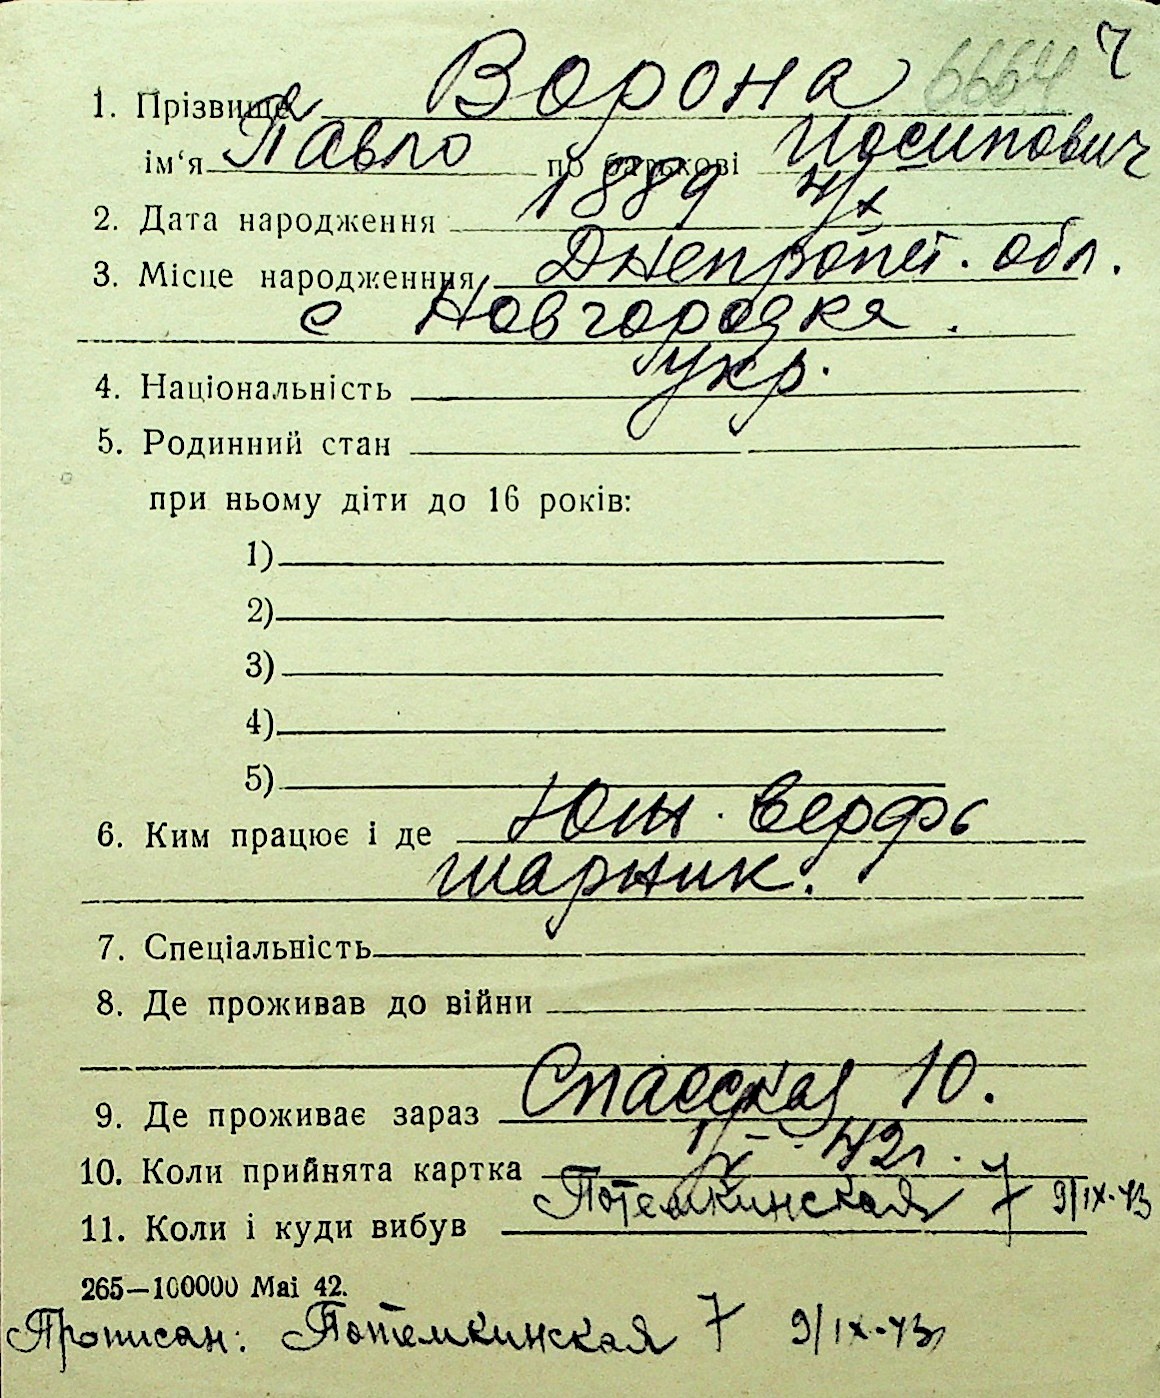 6664 Ч
1. Прізвище Ворона
ім‘я Павло по батькові Иосипович
2. Дата народження 1889 4/X
3. Місце народженння Днепропет. обл.
с Новгородка.
4. Національність укр.
5. Родинний стан
при ньому діти до 16 років:
1)
2)
3)
4)
5)
6. Ким працює і де Южн. верфь
шарник.
7. Спеціальність
8. Де проживав до війни
9. Де проживає зараз Спасская 10.
10. Коли прийнята картка 42г.
11. Коли і куди вибув Потемкинская 7 9/IX-43
265—100000 Mai 42.
Прописан: Потемкинская 7 9/IX-43